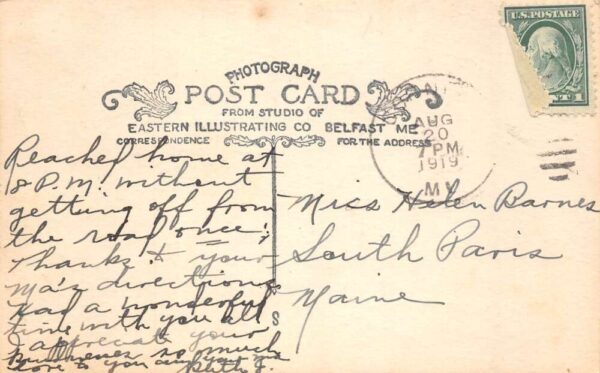 PHOTOGRAPH
POST CARD
FROM STUDIO OF
EASTERN ILLUSTRATING CO BELFAST ME
CORRESPONDENCE
FOR THE ADDRESS
U.S. POSTAGE
AUG
20
7 PM
1919
Reached home at
8 P.M. without
getting off from
the road once;
Thanks to your
Ma's directions
Had a wonderful
time with you all
I appreciate your
so much
Love to you
Ruth J.
S
Miss Helen Barnes
South Paris
Maine